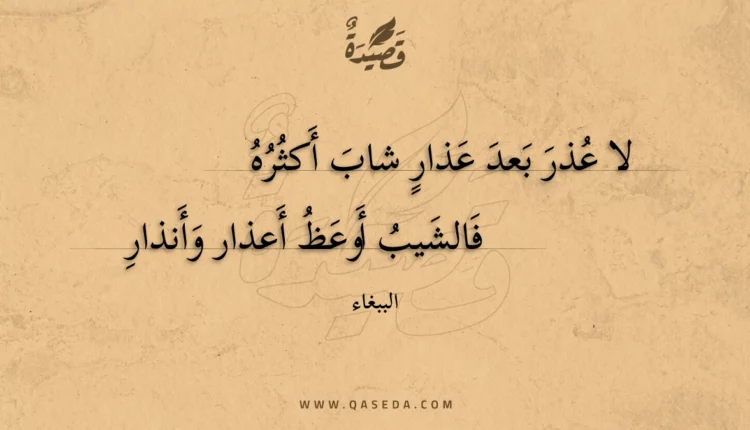 قَصِيْدَةٌ
لا عُذرَ بَعدَ عَذارٍ شابَ أَكثُرُهُ
فَالشَيبُ أَوعَظُ أَعذار وَأَنذارِ
الببغاء
WWW.QASEDA.COM